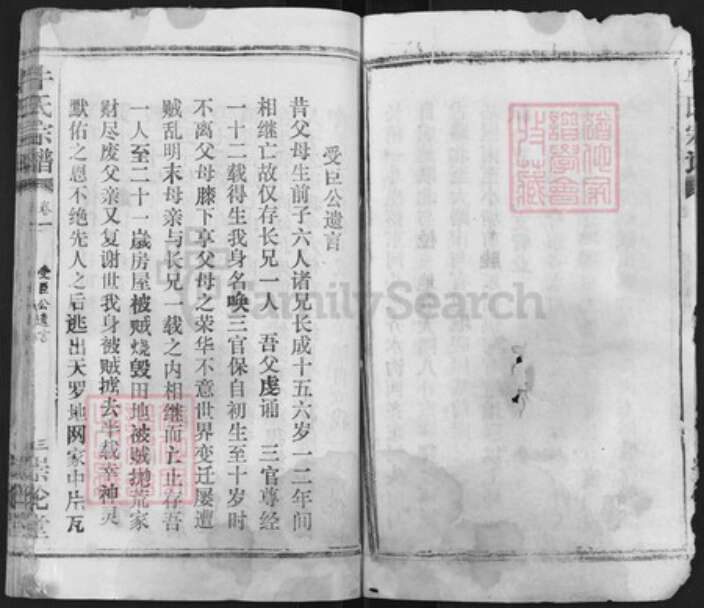 受臣公遗言
昔父母生前子六人诸兄长成十五六岁一二年间
相继亡故仅存长兄一人 吾父虔诵 三官尊经
一十二载得生我身名唤三官保自初生至十岁时
不离父母膝下享父母之荣华不意世界变迁屡遭
贼乱明末母亲与长兄一载之内相继而亡止存吾
一人至二十一岁房屋被贼烧毁田地被贼抛荒家
财尽废父亲又复谢世我身被贼掳去半载幸神灵
默佑之恩不绝先人之后逃出天罗地网家中片瓦
牛氏宗谱
卷一
受臣公遗言
三
FamilySearch